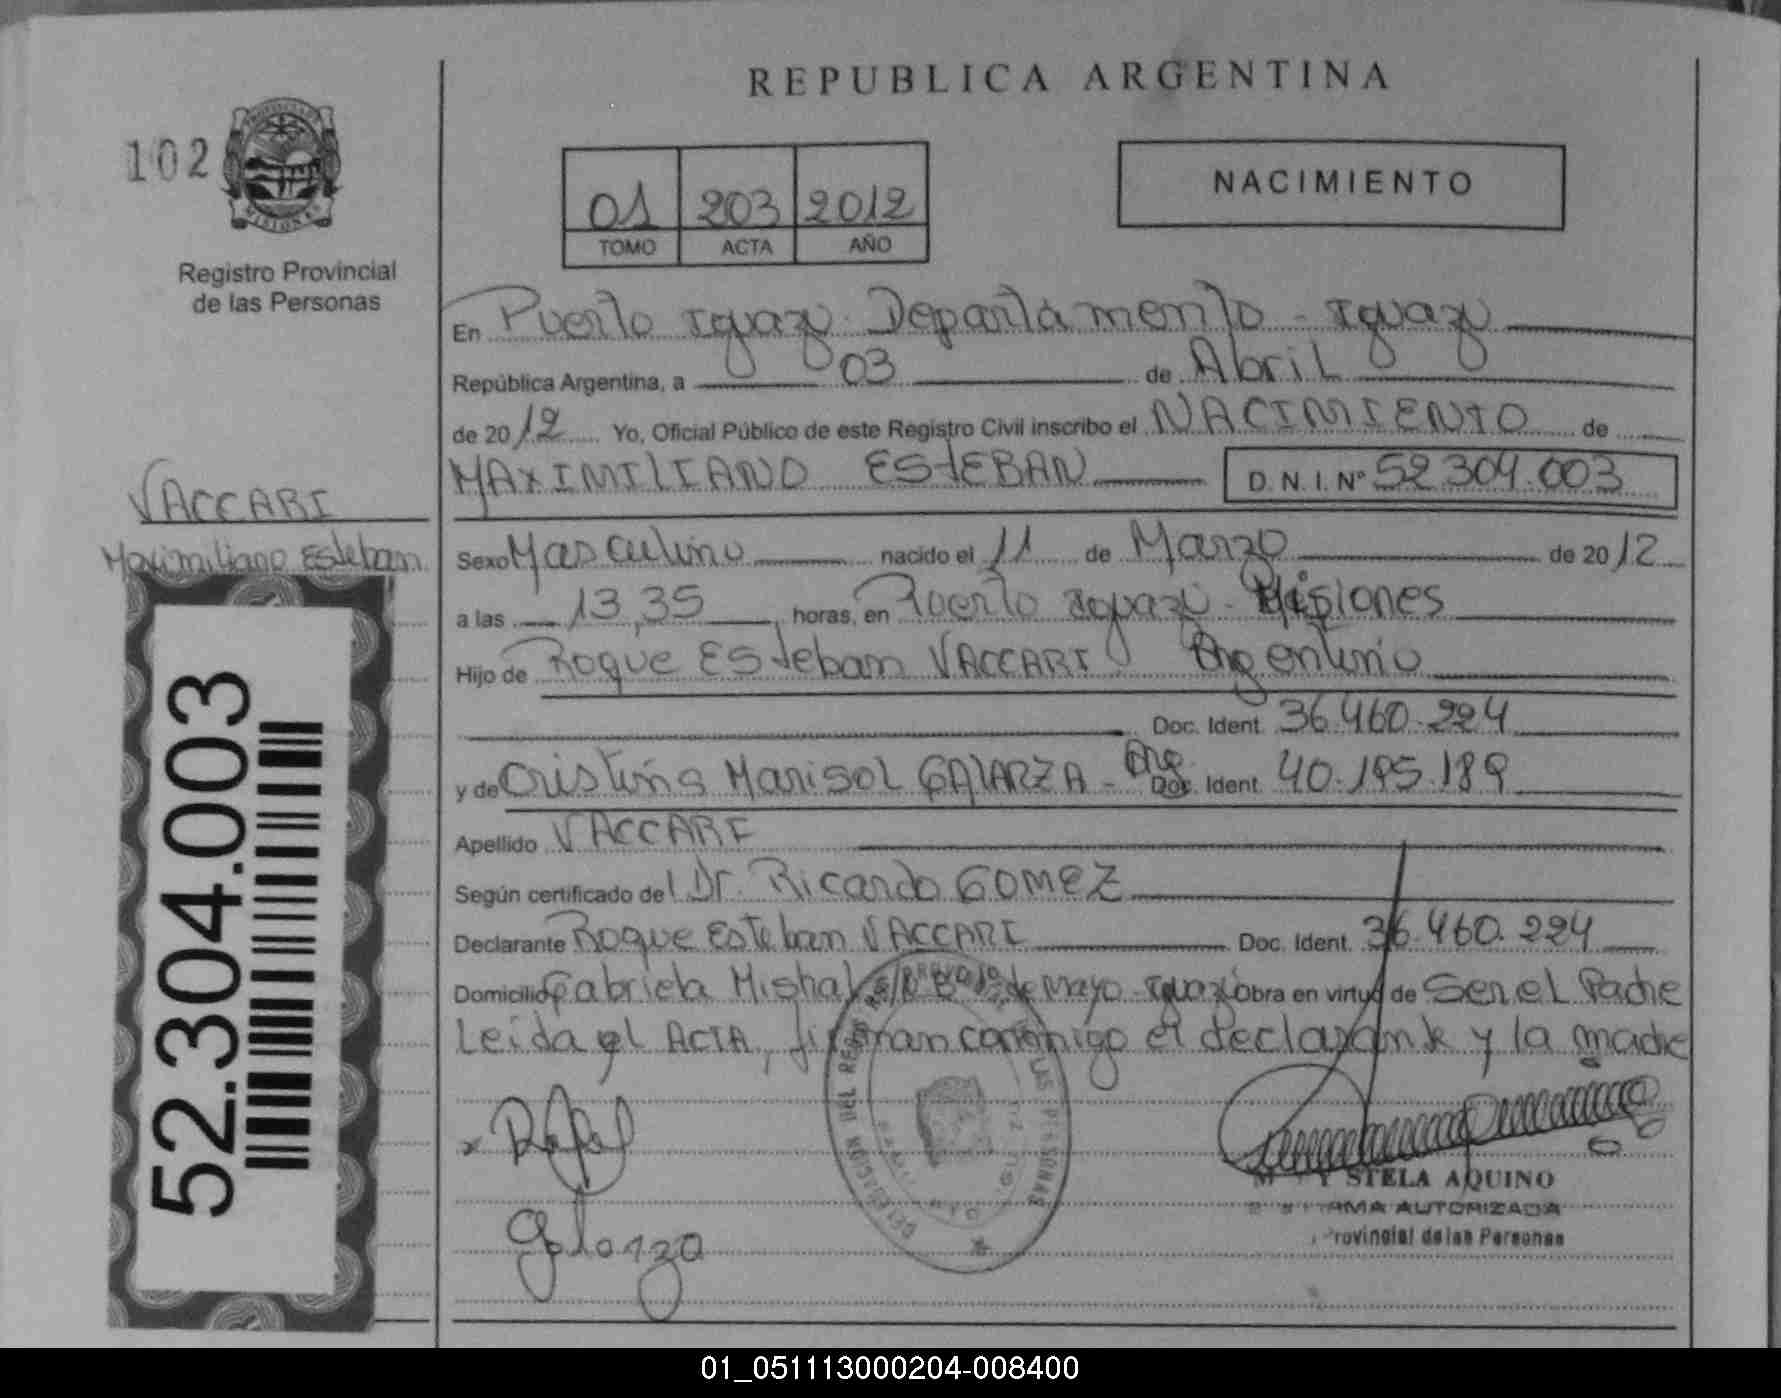 REPUBLICA ARGENTINA
102
01 203 2012
TOMO ACTA AÑO
NACIMIENTO
Registro Provincial
de las Personas
En Puerto Iguazu Departamento - Iguazu
República Argentina, a 03 de Abril
de 2012 Yo, Oficial Público de este Registro Civil inscribo el NACIMIENTO de
MAXIMILIANO ESTEBAN D.N.I. Nº 52.304.003
VACCARI
Maximiliano Esteban
Sexo Masculino nacido el 11 de Marzo de 2012
a las 13,35 horas, en Puerto Iguazu - Misiones
Hijo de Roque Esteban VACCARI Argentino
Doc. Ident. 36.460.224
y de Cristina Marisol GALARZA - Arg. Doc. Ident. 40.195.189
Apellido VACCARI
Según certificado del Dr. Ricardo GOMEZ
Declarante Roque Esteban VACCARI Doc. Ident. 36.460.224
Domicilio Gabriela Mistral s/n B° de Mayo - Iguazú Obra en virtud de Ser el Padre
Leida el ACTA, firman conmigo el declarante y la madre
52.304.003
Galarza
DELEGACION DEL REGISTRO PROVINCIAL DE LAS PERSONAS
STELA AQUINO
FIRMA AUTORIZADA
Provincial de las Personas
01_051113000204-008400